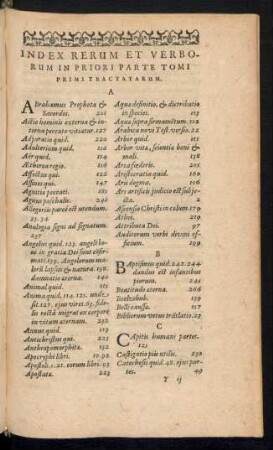 INDEX RERUM ET VERBO-
RUM IN PRIORI PARTE TOMI
PRIMI TRACTATARUM.
A
Abrahamus Propheta &
Sacerdos. 201
Actio hominis externa & in-
terna peccato vitiatur. 127
Adjuratio quid. 200
Adulterium quid. 200
Aër quid. 114
Æthra
Affectus qui. 151
Affines qui. 147
Agnitio peccati. 161
Agnus paschalis. 246
Allegoriis parcè est utendum.
25. 26
Analogia signi ad signatum.
237
Angelus quid. 123. angeli bo-
ni in gratia Dei sunt confir-
mati. 139. Angelorum ma-
lorū lapsus & natura. 150.
damnatio æterna. 140
Animal quid. 115
Anima quid. 114. 125. unde sit
est. 127. ejus vires. 65. fide-
lis rectà migrat ex corpore
in vitam æternam. 263
Annus quid. 119
Antichristus qui. 203
Anthropomorphitæ. 132
Apocryphi libri. 11. 92.
Apostoli. 1. 21. eorum libri. 93
Apostata. 223
Aqua definitio, & distributio
in species. 115
Aqua supra firmamentum. 112
Arabica novi Test. versio. 22
Arbor quid. 115
Arbor vitæ, scientia boni &
mali. 158
Arca fœderis. 205
Aristocratia quid. 200
Ars dogma. 106
Ars artificis judicio est subje-
cta. 2
Ascensio Christi in cælum. 179
Athei. 219
Artes. 99
Attributa Dei. 97
Auditorum verbi divini of-
ficium. 199
B
Baptismus quid. 242. 244.
dandus est infantibus
piorum. 244
Beatitudo æterna. 266
Beelzebub. 199
Bellarminus. 159
Bibliorum vetus trãslatio. 23
C
Capitis humani partes.
121
Castigatio piis utilis. 230
Catechesis quid. 48. ejus par-
tes. 49
Y ij